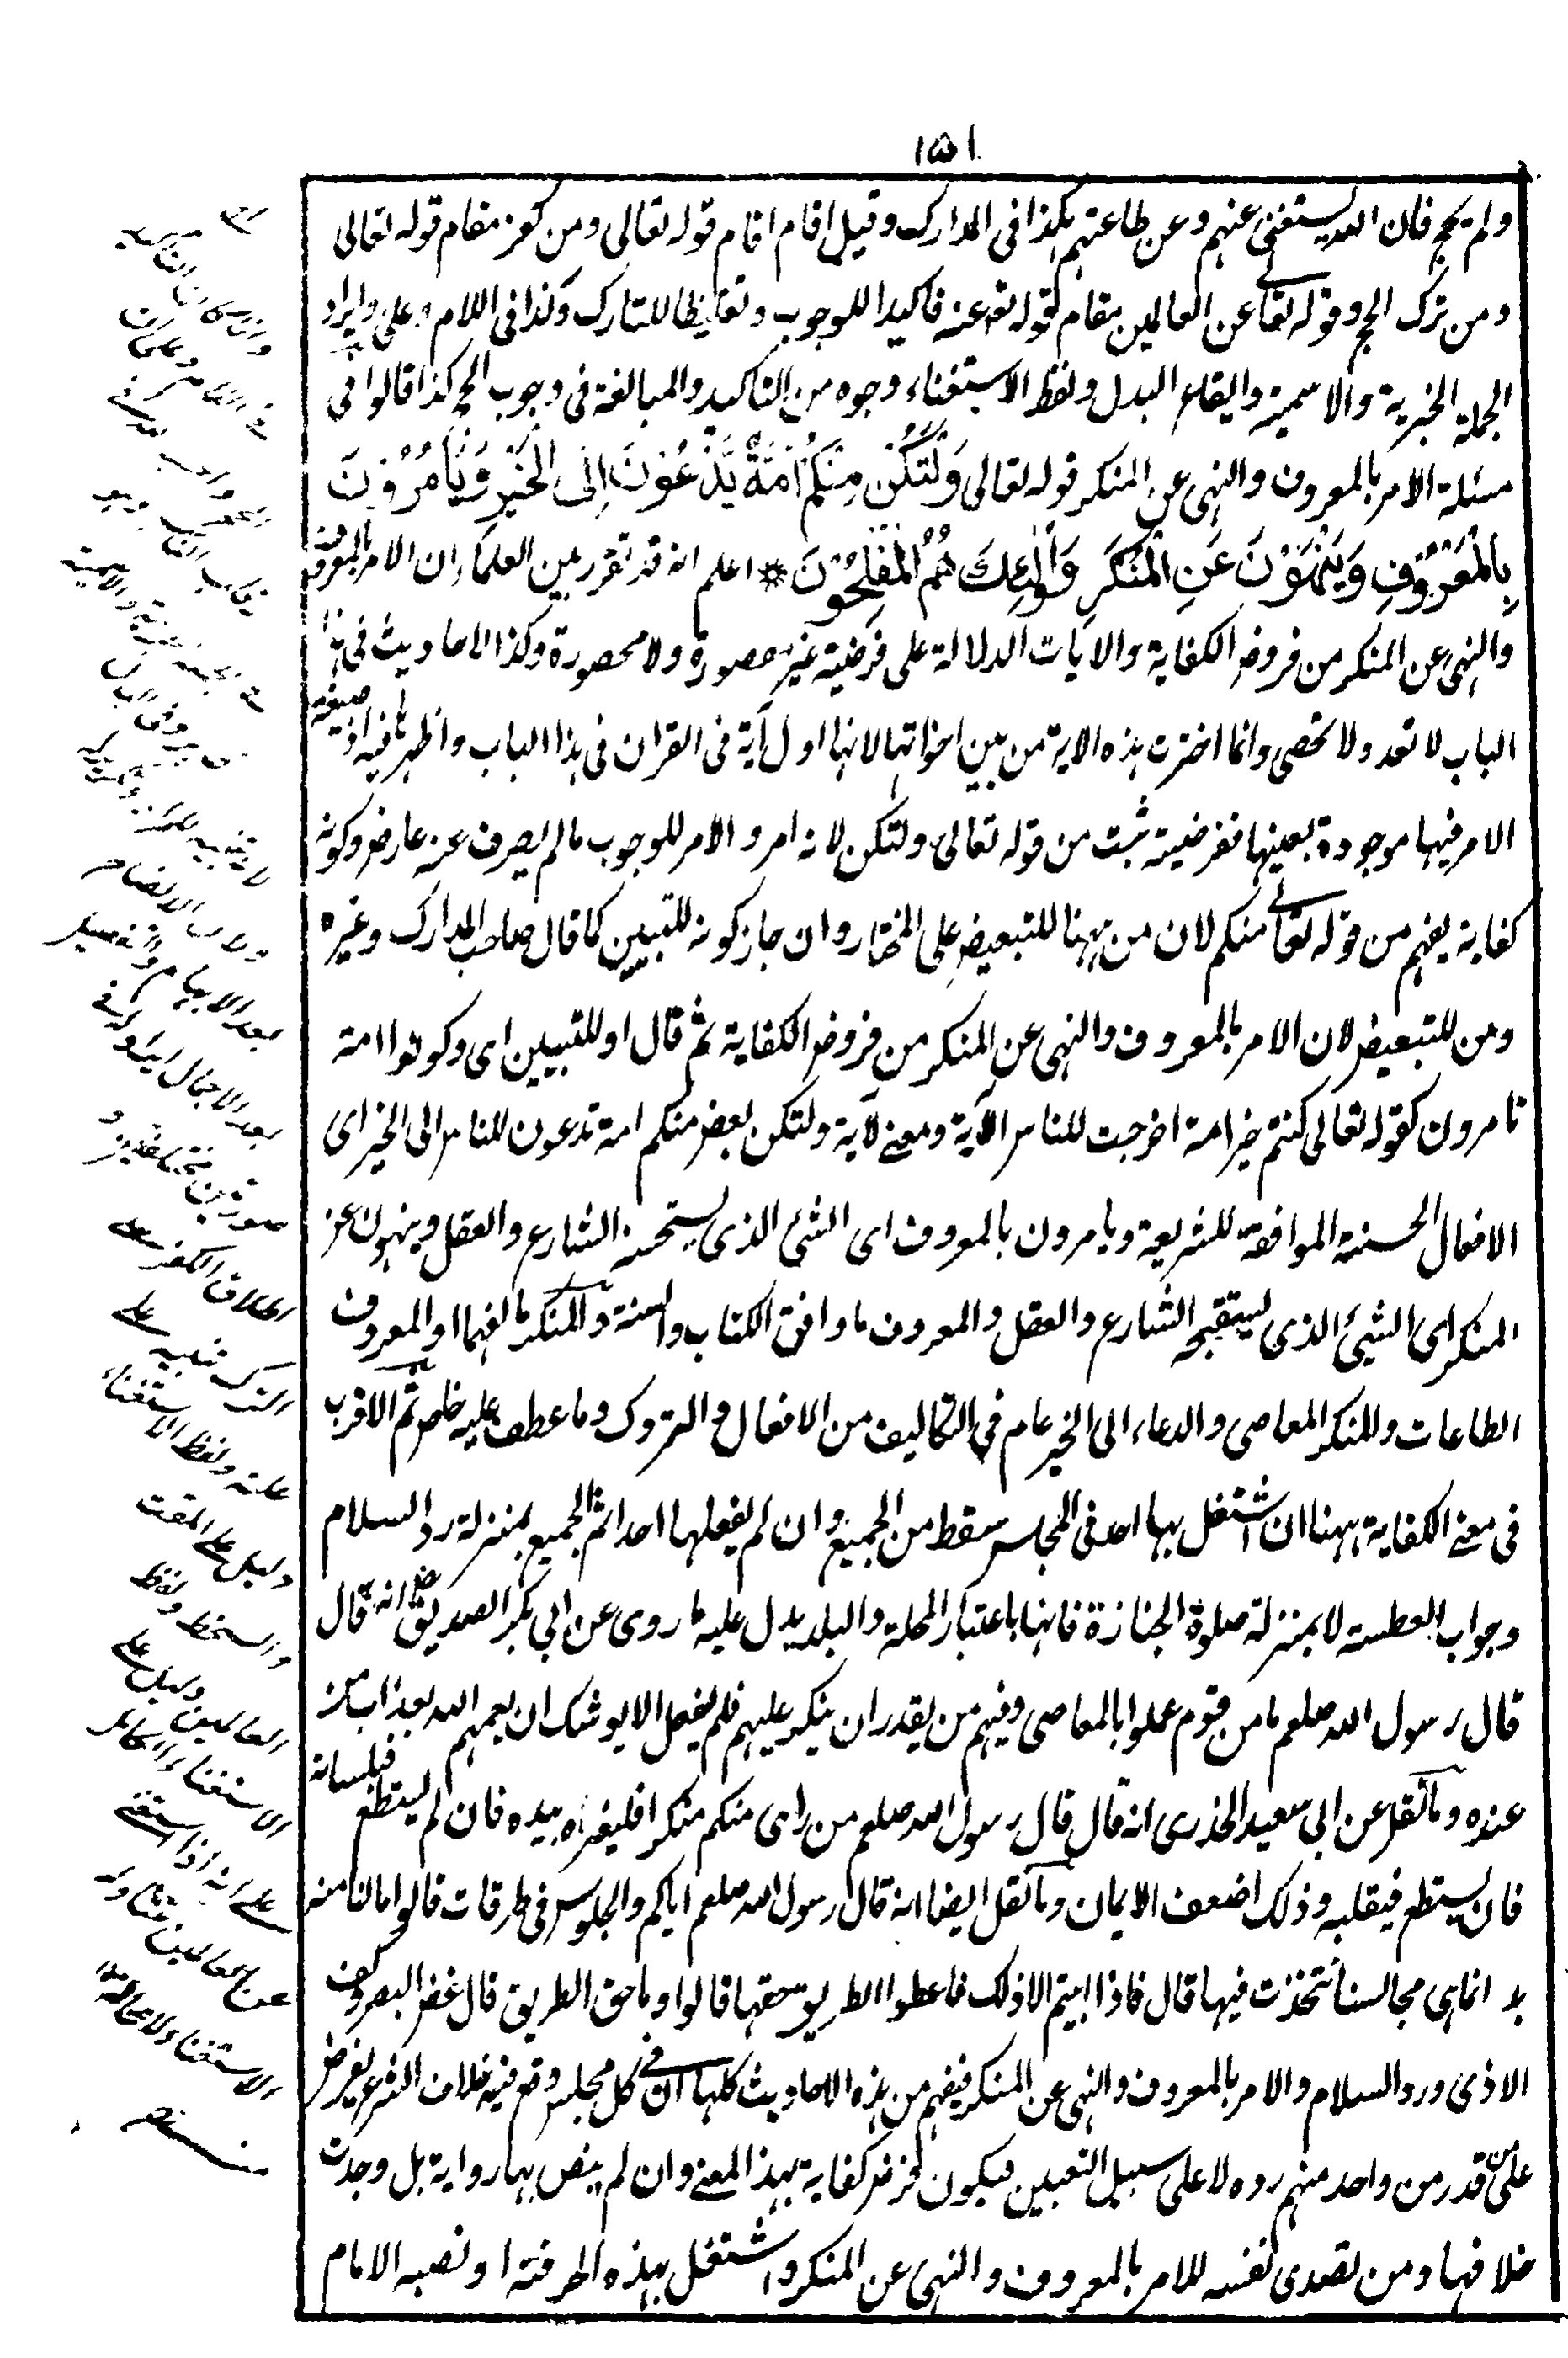 ١٥١
ولم يحج فان الله يستغنى عنهم وعن طاعتهم هكذا فى المدارك وقيل اقام اقام قوله تعالى ومن كفر مقام قوله تعالى
ومن ترك الحج وقوله تعالے عن العالمين مقام قوله تعه عنه تاكيدا للوجوب وتغليظا للتارك وكذا فى اللام وعلى وايراد
الجملة الخبرية والاسمية وايقاع البدل ولفظ الاستغناء وجوه من التاكيد والمبالغة فى وجوب الحج كذا قالوا فى
مسئلة الامر بالمعروف والنهى عن المنكر قوله تعالى وَلْتَكُنْ مِنْكُمْ اُمَّةٌ يَّدْعُوْنَ اِلَى الْخَيْرِ وَيَاْمُرُوْنَ
بِالْمَعْرُوْفِ وَيَنْهَوْنَ عَنِ الْمُنْكَرِ وَاُولٰٓئِكَ هُمُ الْمُفْلِحُوْنَ * اعلم انه قد تقرر بين العلماء ان الامر بالمعروف
والنهى عن المنكر من فروض الكفاية والايات الدلالة على فرضيته غير مقصورة ولا محصورة وكذا الاحاديث فى هذا
الباب لا تعد ولا تحصى وانما اخترت هذه الاية من بين اخواتها لانها اول آية فى القران فى هذا الباب واظهرها فيه اذ صيغة
الامر فيها موجودة بعينها ففرضيته ثبت من قوله تعالى ولتكن لانه امر والامر للوجوب مالم يصرف عنه عارض وكونه
كفاية يفهم من قوله تعالے منكم لان من ههنا للتبعيض على المختار وان جاز كونه للتبيين كما قال صاحب المدارك وغيره
ومن للتبعيض لان الامر بالمعروف والنهى عن المنكر من فروض الكفاية ثم قال او للتبيين اى وكونوا امة
تامرون كقوله تعالى كنتم خير امة اخرجت للناس الآية ومعنے لآية ولتكن بعض منكم امة تدعون للناس الى الخير اى
الافعال الحسنة الموافقة للشريعة ويامرون بالمعروف اى الشئ الذى يستحسنه الشارع والعقل وينهون عن
المنكر اى الشيئ الذى يستقبحه الشارع والعقل والمعروف ما وافق الكتاب والسنة والمنكر ما لفهما او المعروف
الطاعات والمنكر المعاصى والدعاء الى الخير عام فى التكاليف من الافعال والتروك وما عطف عليه خاص ثم الاقرب
فى معنے الكفاية ههنا ان اشتغل بها احد فى المجلس سقط من الجميع وان لم يفعلها احد اثم الجميع بمنزلة رد السلام
وجواب العطسة لا بمنزلة صلوة الجنازة فانها باعتبار المحلة والبلد يدل عليه ما روى عن ابى بكر الصديق رض انه قال
قال رسول الله صلعم ما من قوم عملوا بالمعاصى وفيهم من يقدر ان ينكر عليهم فلم يفعل الا يوشك ان يعمهم الله بعذاب من
عنده وما نقل عن ابى سعيد الخدرى انه قال قال رسول الله صلعم من راى منكم منكرا فليغيره بيده فان لم يستطع فبلسانه
فان لم يستطع فبقلبه وذلك اضعف الايمان وما نقل ايضا انه قال رسول الله صلعم اياكم والجلوس فى طرقات قالوا مالنا منه
بد انما هى مجالسنا نتحذث فيها قال فاذا ابيتم الا ذلك فاعطوا الطريق حقها قالوا وما حق الطريق قال غض البصر وكف
الاذى ورد السلام والامر بالمعروف والنهى عن المنكر فيفهم من هذه الاحاديث كلها ان فے كل مجلس وقع فيه خلاف الشرع يفرض
على من قدر من واحد منهم رده لا على سبيل التعيين فيكون فرض كفاية بهذا المعنے وان لم ينص بها رواية بل وجدت
خلافها ومن تصدى نفسه للامر بالمعروف والنهى عن المنكر واشتغل بهذه الحرفة او نصبه الامام
بعد الابهام والتفصيل
بعد الاجمال ايراد له فے
صورتين مختلفتين و
اطلاق الكفر علے
الترك تغليبه علے
ولفظ الاستغناء
دليل علے المقت
والسخط ولفظ
العالمين دليل علے
علے انه اذا استغنے
عن العالمين